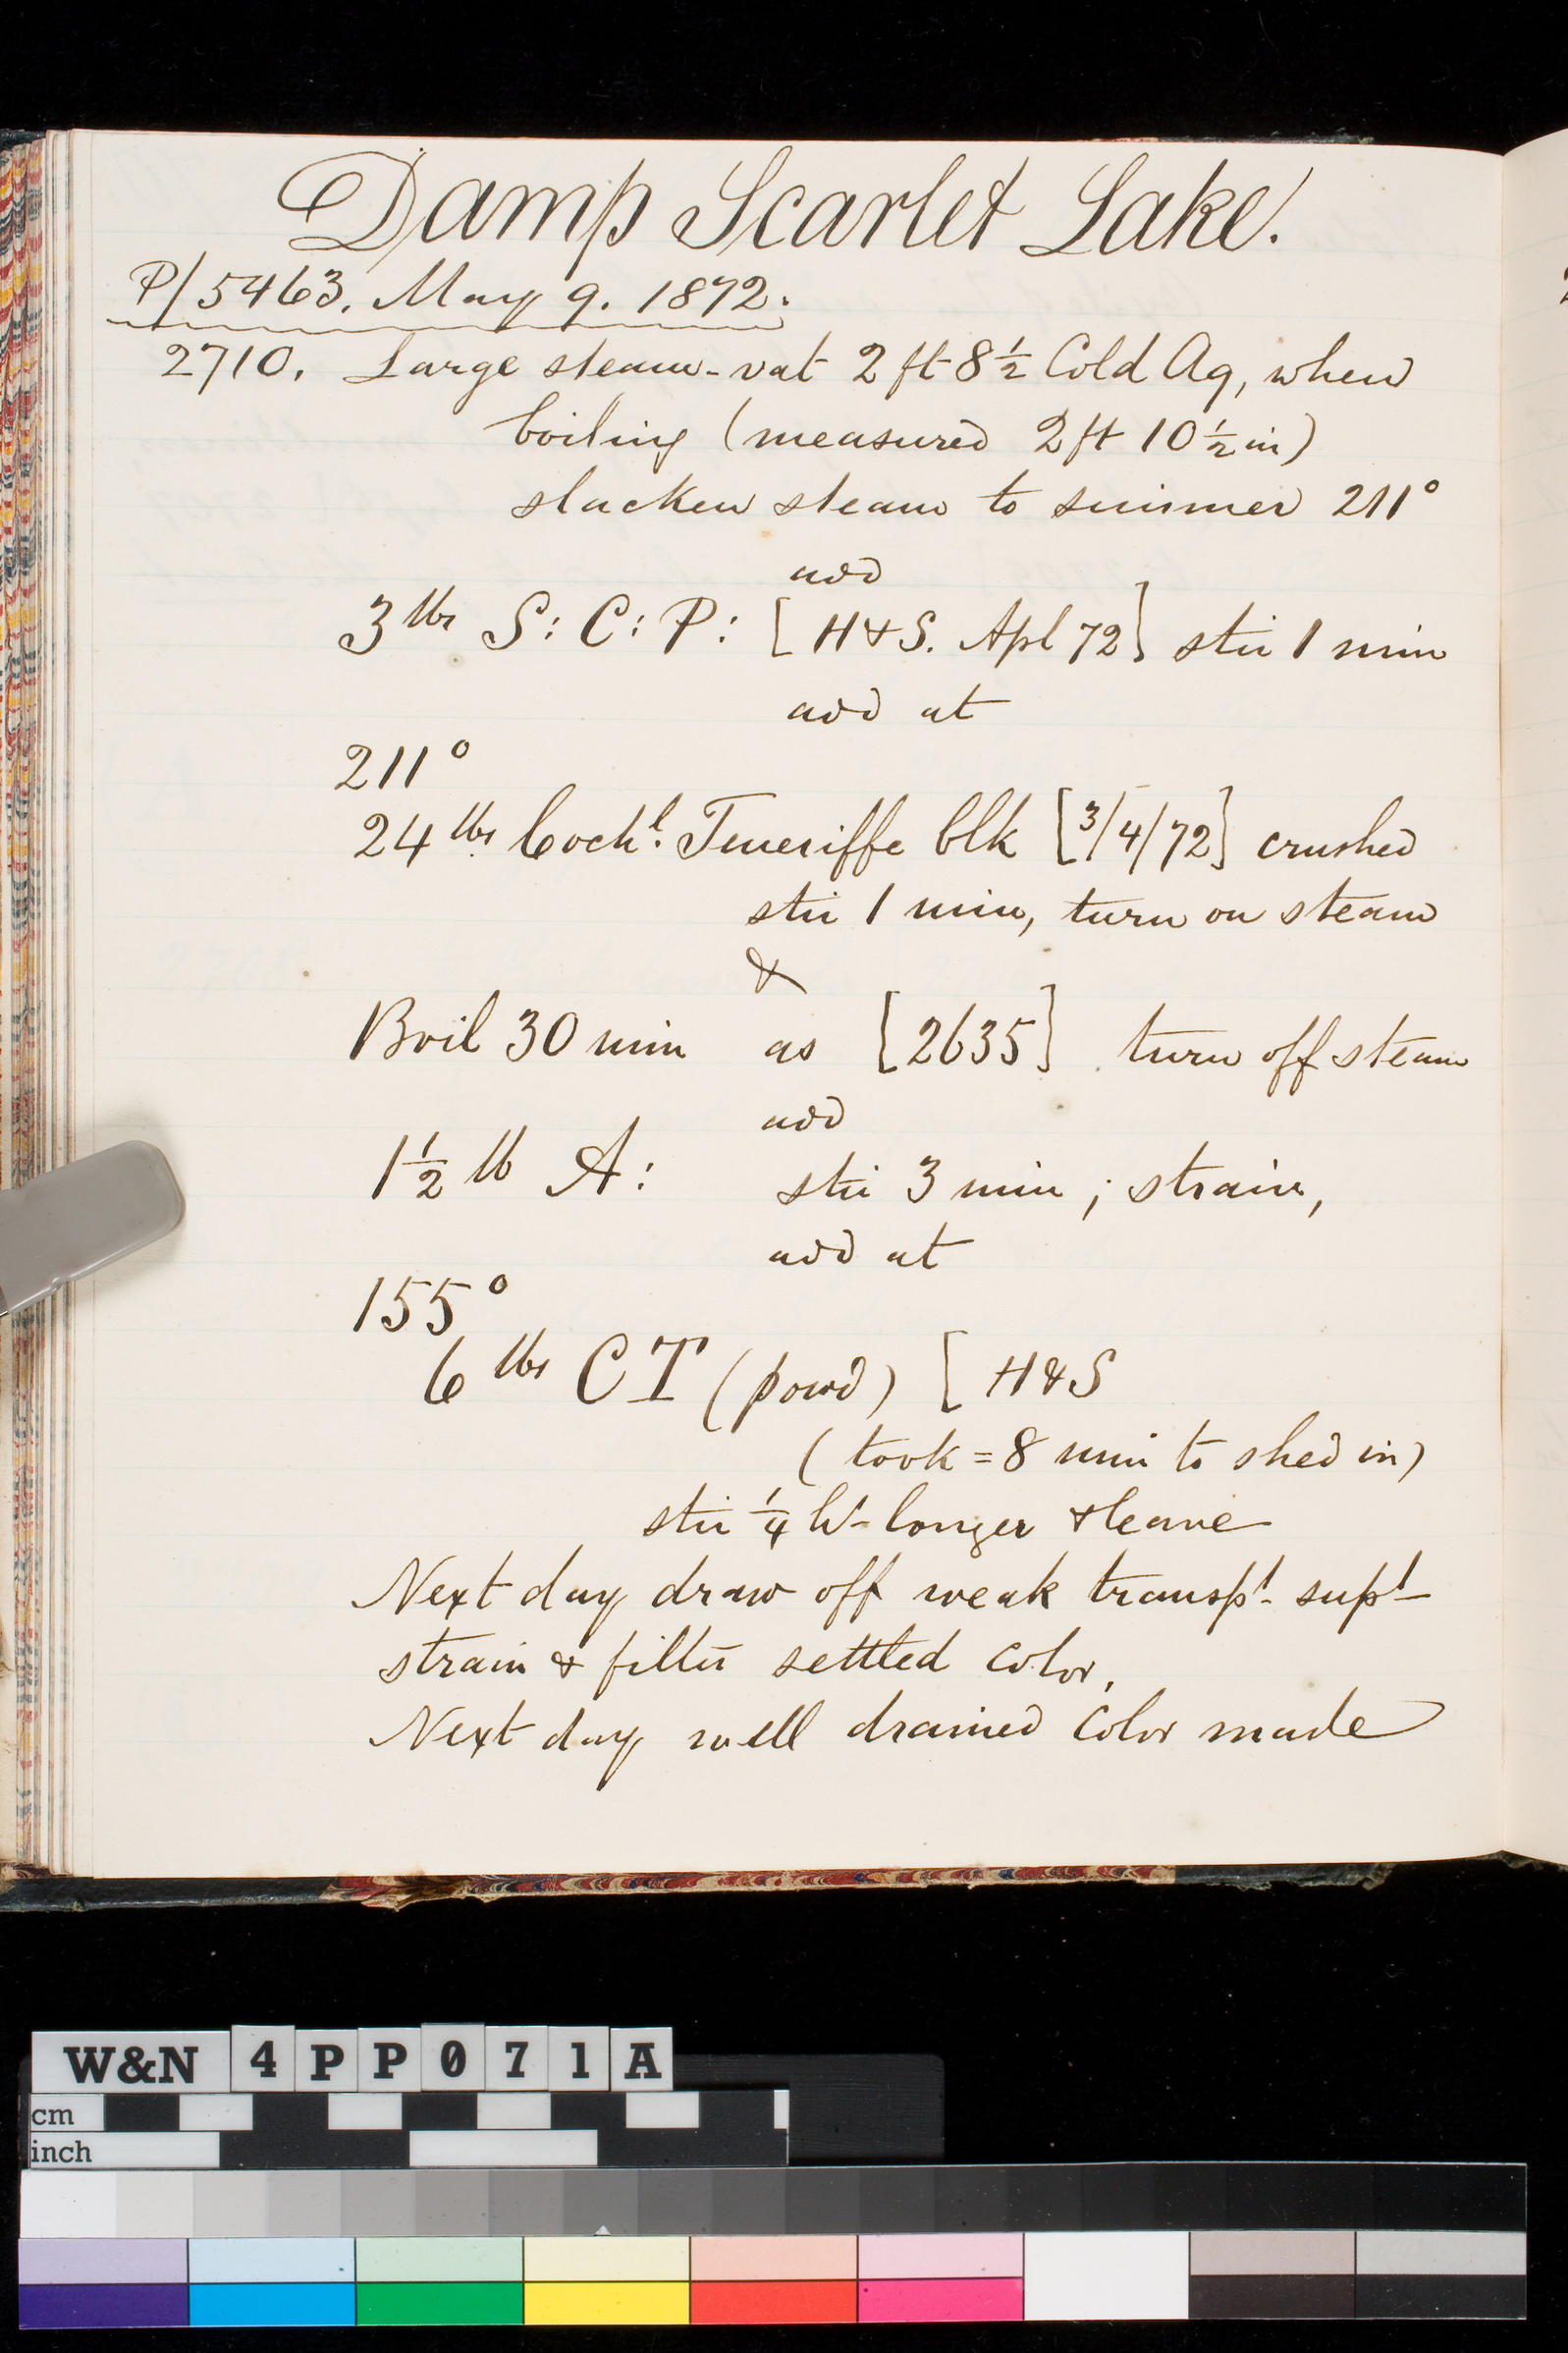 Damp Scarlet Lake.
P/5463. May 9. 1872.
2710. Large steam-vat 2 ft 8 ½ Cold Aq, when
boiling (measured 2 ft 10 ½ in)
slacken steam to simmer 211°
add
3 lbs S: C: P: [H & S. Apl 72] stir 1 min
add at
211°
24 lbs Cochl. Teneriffe blk [3/4/72] crushed
stir 1 min, turn on steam
&
Boil 30 min as [2635] turn off steam
add
1½ lb A: stir 3 min ; strain,
add at
155°
6 lbs CT (powd) [H & S
(took = 8 min to shed in)
stir ¼ hr longer & leave
Next day draw off weak transpt. supt
strain & filter settled color.
Next day well drained color made
W&N 4PP071A
cm
inch